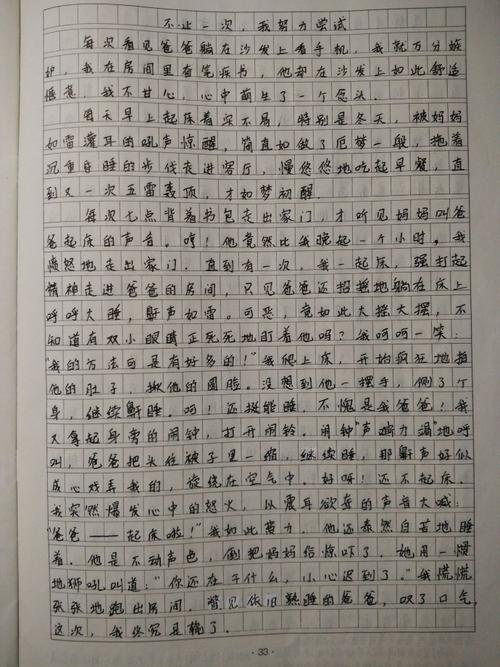 不止一次，我努力尝试
每次看见爸爸躺在沙发上看手机，我就万分嫉
妒，我在房间里奋笔疾书，他却在沙发上如此舒适
惬意，我不甘心，心中萌生了一个念头．
每天早上起床着实不易，特别是冬天，被妈妈
如雷灌耳的吼声惊醒，简直如做了厄梦一般，拖着
沉重自睡的步伐走进客厅，慢悠悠地吃起早餐，直
到又一次五雷轰顶，才如梦初醒．
每次七点背着书包走出家门，才听见妈妈叫爸
爸起床的声音。哼！他竟然比我晚起一个小时。我
愤怒地走出家门．直到有一次，我一起床，强打起
精神走进爸爸的房间，只见爸爸还招摇地躺在床上
呼呼大睡，鼾声如雷。可恶，竟如此大摇大摆，不
知道有双小眼睛正死死地盯着他吗？我呵呵一笑：
“我的方法可是有好多的！”我爬上床，开始疯狂地拍
他的肚子，揪他的圆脸。没想到他一摆手，侧了个
身，继续鼾睡。呵！还挺能睡，不愧是我爸爸！我
又拿起身旁的闹钟，打开闹铃。闹钟“声嘶力竭”地呼
叫，爸爸把头往被子里一缩，继续睡，那鼾声好似
成心戏弄我的，旋绕在空气中。好啊！还不起床．
我突然爆发心中的怒火，以震耳欲聋的声音大喊：
“爸爸——起床啦！”我如此努力，他还泰然自若地睡
着．他是不动声色，倒把妈妈给惊吓了．她用一惯
地狮吼叫道：“你还在干什么，小心迟到了．”我慌慌
张张地跑出房间，瞥见依旧熟睡的爸爸，叹了口气，
这次，我终究是输了．
·33·